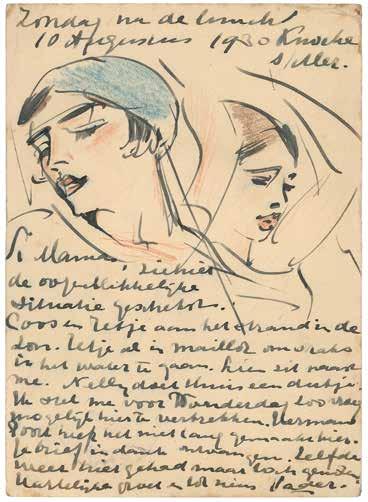 Zondag na de lunch
10 Augustus 1930 Knocke
s/Mer.
L. Mama, ziehier
de oogenblikkelijke
situatie geschetst.
Coos en Tetje aan het strand in de
zon. Tetje al in maillot om straks
in het water te gaan. Lien zit naast
me. Nelly doet thuis een dutje.
Ik stel me voor Donderdag zoo vroeg
mogelijk hier te vertrekken. Herman
Poort heeft het niet lang gemaakt hier.
Je brief in dank ontvangen. Zelfde
weer hier gehad maar toch genoten
Hartelijke groet en tot ziens Vader.